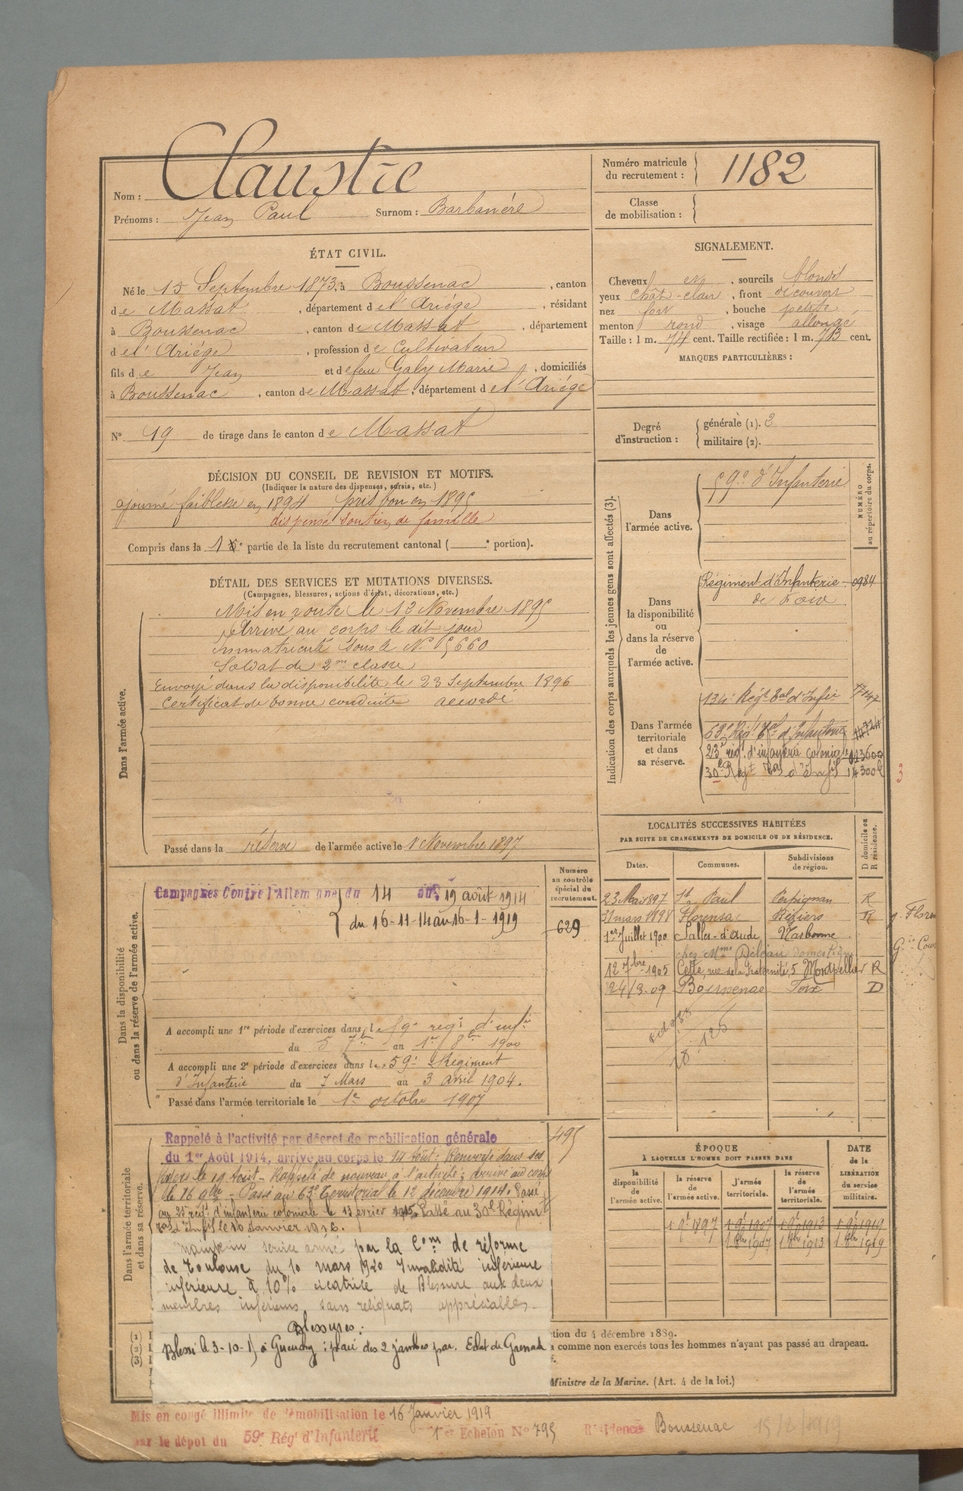 Nom : Claustre
Prénoms : Jean Paul Surnom : Barbanère
Numéro matricule du recrutement : 1182
Classe de mobilisation :
ÉTAT CIVIL.
Né le 15 Septembre 1873, à Boussenac, canton
de Massat, département de l'Ariège, résidant
à Boussenac, canton de Massat, département
de l'Ariège, profession de Cultivateur
fils de Jean et de feue Galy Marie, domiciliés
à Boussenac, canton de Massat, département de l'Ariège
N° 19 de tirage dans le canton de Massat
SIGNALEMENT.
Cheveux et, sourcils blonds
yeux chât-clair, front découvert
nez fort, bouche petite
menton rond, visage allongé
Taille : 1 m. 74 cent. Taille rectifiée : 1 m. 73 cent.
MARQUES PARTICULIÈRES :
Degré d'instruction : générale (1). 3
militaire (2).
DÉCISION DU CONSEIL DE REVISION ET MOTIFS.
(Indiquer la nature des dispenses, sursis, etc.)
ajourné faiblesse en 1894 pris bon en 1895
dispensé soutien de famille
Compris dans la 1e partie de la liste du recrutement cantonal ( e portion).
DÉTAIL DES SERVICES ET MUTATIONS DIVERSES.
(Campagnes, blessures, actions d'éclat, décorations, etc.)
Dans l'armée active.
Mis en route le 13 Novembre 1895
Arrivé au corps le dit jour
Immatriculé sous le N° 5660
Soldat de 2me classe
Envoyé dans la disponibilité le 23 Septembre 1896
Certificat de bonne conduite accordé
Passé dans la réserve de l'armée active le 1 Novembre 1897
Indication des corps auxquels les jeunes gens sont affectés (3).
NUMÉRO au répertoire du corps.
Dans l'armée active.
59e d'Infanterie
Dans la disponibilité ou dans la réserve de l'armée active.
Régiment d'Infanterie 0984
de Foix
Dans l'armée territoriale et dans sa réserve.
134e Régt Tal d'Infie
63e Régt Tal d'Infanterie
23e rég. d'infanterie coloniale 013600
30e Régt Tal d'Inf
3
Dans la disponibilité ou dans la réserve de l'armée active.
Campagnes Contre l'Allemagne du 14 au 19 août 1914
du 16-11-14 au 16-1-1919
Numéro au contrôle spécial du recrutement.
629
A accompli une 1re période d'exercices dans le 59e régt d'infie
du 5 7bre au 1er 8bre 1900
A accompli une 2e période d'exercices dans le 59e Régiment
d'Infanterie du 7 Mars au 3 avril 1904.
Passé dans l'armée territoriale le 1er octobre 1907
LOCALITÉS SUCCESSIVES HABITÉES
PAR SUITE DE CHANGEMENTS DE DOMICILE OU DE RÉSIDENCE.
Dates. Communes. Subdivisions de région. D domicile ou R résidence.
23 Mai 1897 St Paul Perpignan R
31 mars 1898 Florensac Béziers R
1er Juillet 1900 Salles-d'Aude Narbonne
12 7bre 1905 Cette, rue de la Fraternité, 5 Montpellier R
24/3.09 Boussenac Foix D
Dans l'armée territoriale et dans sa réserve.
Rappelé à l'activité par décret de mobilisation générale 495
du 1er Août 1914, arrivé au corps le 14 Août; Renvoyé dans ses
foyers le 19 Août - Rappelé de nouveau à l'activité; arrivé au corps
le 16 9bre - Passé au 63e Territorial le 12 décembre 1914. Passé
au 23e régt d'infanterie coloniale le 13 février 1915. Passé au 30e Régiment
Tal d'Infie le 16 Janvier 1916.
Maintenu service armé par la Com de réforme
de Toulouse du 10 mars 1920 Invalidité inférieure
inférieure à 10% cicatrice de Blessure aux deux
membres inférieurs sans reliquats appréciables.
Blessures :
plaie des 2 jambes par Eclat de Grenade
ÉPOQUE
À LAQUELLE L'HOMME DOIT PASSER DANS
DATE de la LIBÉRATION du service militaire.
la disponibilité de l'armée active. la réserve de l'armée active. l'armée territoriale. la réserve de l'armée territoriale.
1 9bre 1897 1 9bre 1907 1 9bre 1913 1 9bre 1919
1 8bre 1907 1 8bre 1913 1 8bre 1919
(1)
(2)
(3)
tion du 4 décembre 1889.
à comme non exercés tous les hommes n'ayant pas passé au drapeau.
Ministre de la Marine. (Art. 4 de la loi.)
Mis en congé illimité de démobilisation le 16 Janvier 1919
par le dépôt du 59e Rég d'Infanterie 1er Echelon N° 795 Résidence Boussenac